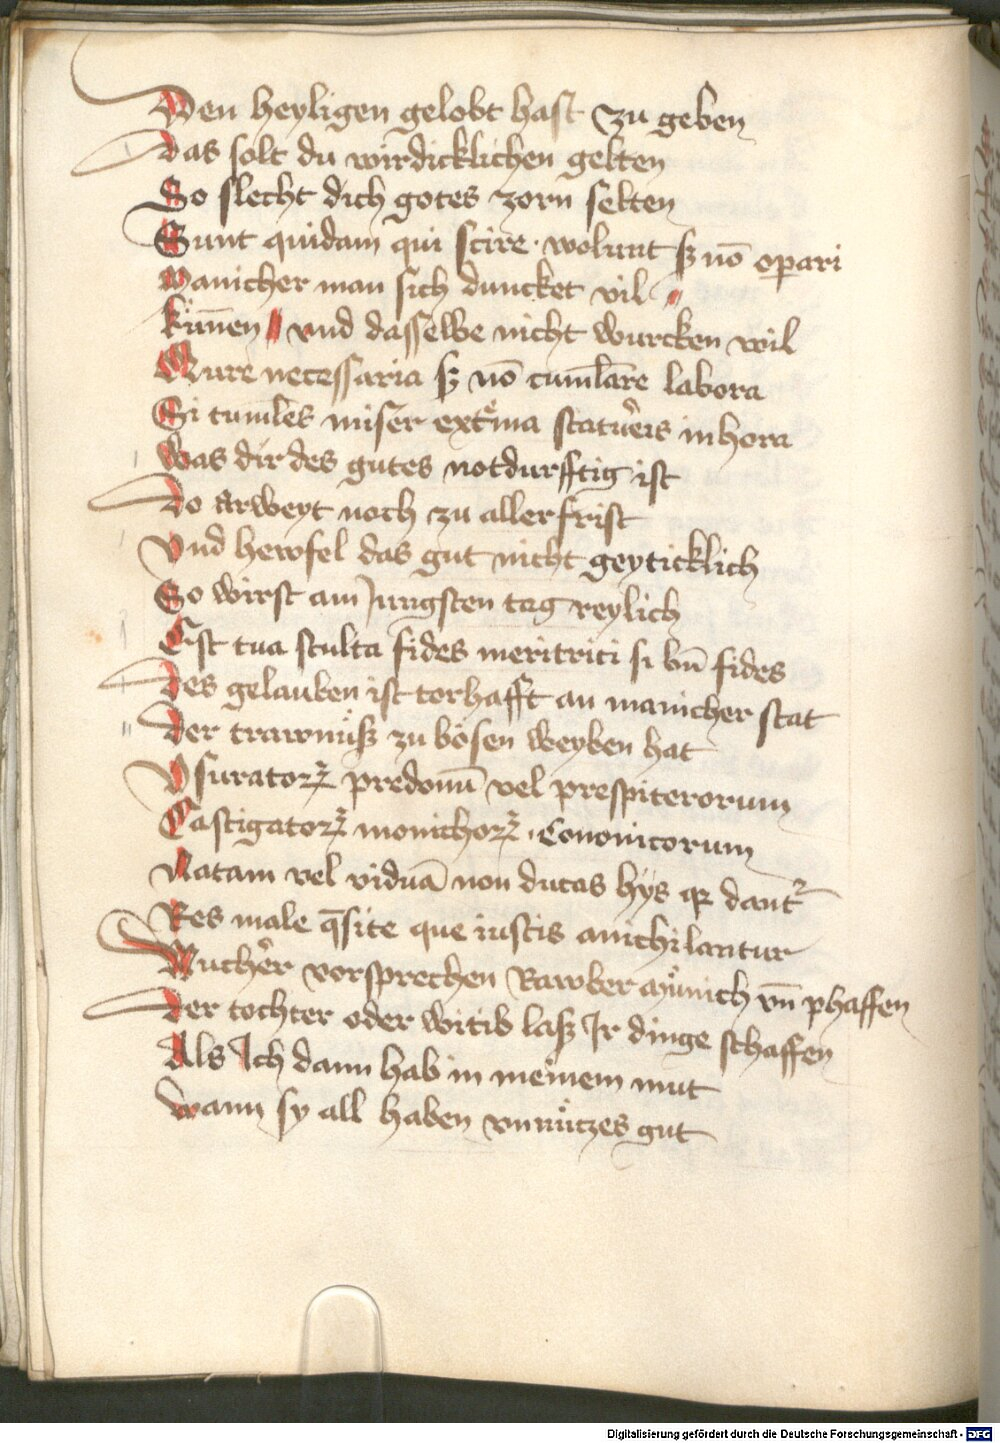 Den heyligen gelobt hast zu geben
Das solt du wirdicklichen gelten
So slecht dich gotes zorn selten
Sunt quidam qui scire · wolunt sz nō operari
Manicher man sich duncket vil
kün̄en vnd dasselbe nicht wurcken wil
necessaria sz nō cumlare labora
Si cumles miser extͤma statueris in hora
Was dir des gutes notdurfftig ist
Do arweyt noch zu aller frist
Vnd hewfel das gut nicht geyticklich
So wirst am Jungsten tag reylich
Est tua stulta fides meritrici si bn̄ fides
Des gelauben ist torhafft an manicher stat
Der trawnüsz zu bösen weyben hat
Vsuratorꝝ predonū vel prespiterorum
Castigatorꝝ monichorꝝ · Cononicorum
Natam vel viduā non ducas hys qꝛ dantᷣ
Res male q̄site que iustis anichilantur
Wucher vorsprechen Rawber münich vn̄ phaffen
Der tochter oder witib lasz Ir dinge schaffen
Als Ich dann hab in meinem mut
Wann sy all haben vnnützes gut
Digitalisierung gefördert durch die Deutsche Forschungsgemeinschaft - DFG